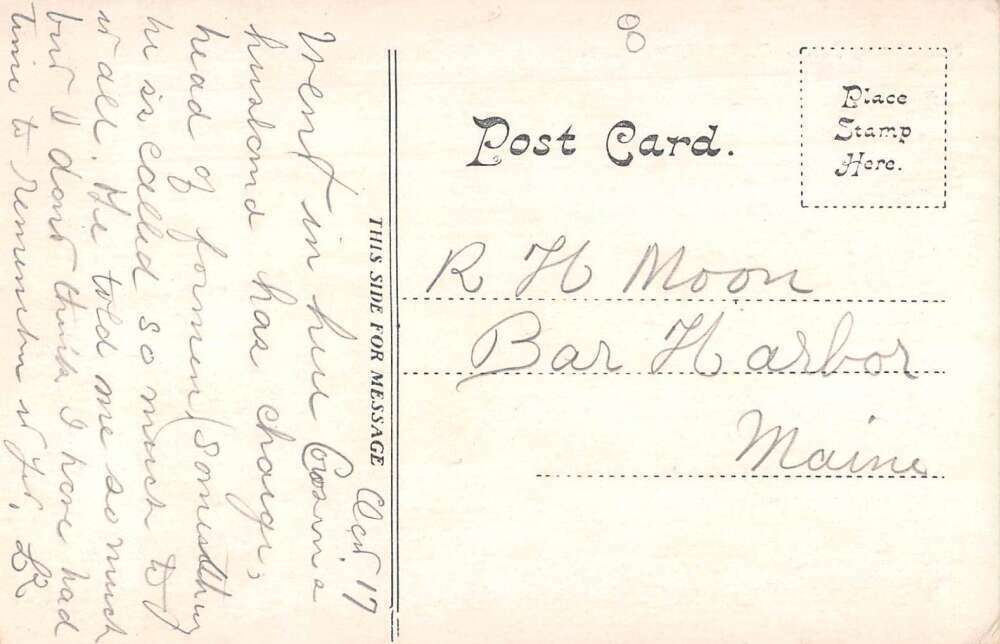 Post Card.
Place
Stamp
Here.
THIS SIDE FOR MESSAGE
R H Moon
Bar Harbor
Maine
Oct 17
Went in here Cousins
husband has charge,
head of formen (something
he is called so much to
it all. He told me so much
but I dont think I have had
time to remember it yet,